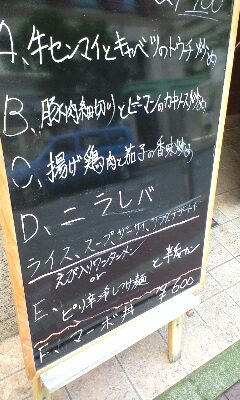 A、牛センマイとキャベツのトウチ炒め
B、豚肉細切りとピーマンのカキソース炒め
C、揚げ鶏肉と茄子の香味炒め
D、ニラレバ
ライス、スープ、ザーサイ、サラダ、デザート
えび入りワンタンメン
or
と半飯
E、ピリ辛冷しつけ麺
F、マーボ丼 ¥600